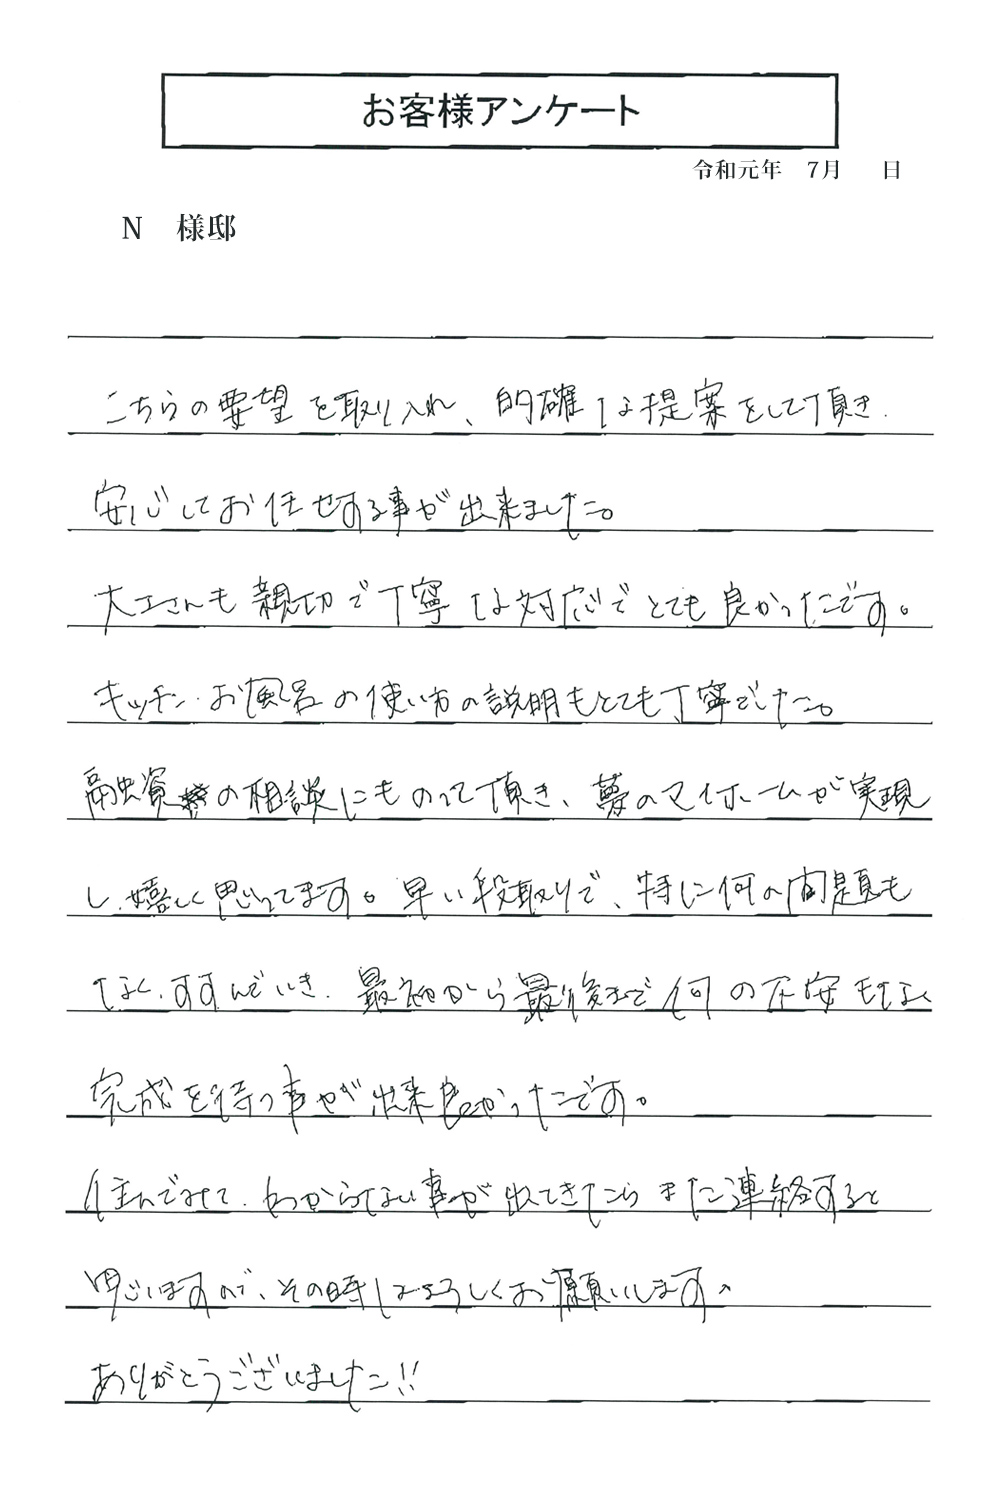 お客様アンケート
令和元年 7月 日
N 様邸
こちらの要望を取り入れ、的確な提案をして頂き、
安心してお任せする事が出来ました。
大工さんも親切で丁寧な対応でとても良かったです。
キッチン・お風呂の使い方の説明もとても丁寧でした。
融資の相談にものって頂き、夢のマイホームが実現
し、嬉しく思ってます。早い段取りで、特に何の問題も
なく、すすんでいき、最初から最後まで何の不安もなく
完成を待つ事が出来良かったです。
住んでみて、わからない事が出てきたらまた連絡すると
思いますので、その時はよろしくお願いします。
ありがとうございました!!